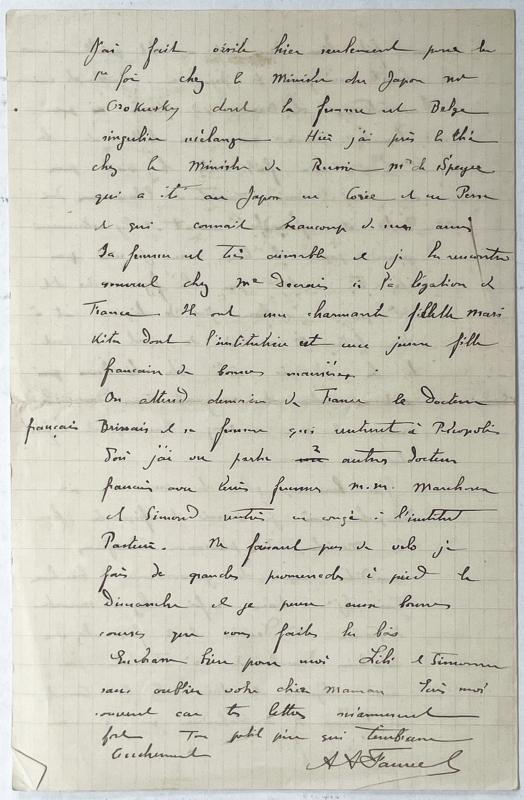 J'ai fait visite hier seulement pour la
1re fois chez le Ministre du Japon mr
dont la femme est Belge
singulier mélange. Hier j'ai pris le thé
chez le Ministre de Russie mr de Speyer
qui a été au Japon en Corée et en Perse
et qui connait beaucoup de mes amis
Sa femme est très aimable et je les rencontre
souvent chez Me Decrais à la légation de
France Ils ont une charmante fillette Mari
Kita dont l'institutrice est une jeune fille
française de bonnes manières.
On attend demain de France le Docteur
français Brissais et sa femme qui rentrent à Pétropolis
d'où j'ai vu partir 2 autres docteurs
français avec leurs femmes m.m. Marchoux
et Simond rentrés en congé à l'institut
Pasteur. Ne faisant pas de velo je
fais de grandes promenades à pied le
Dimanche et je pense aux bonnes
courses que vous faites là bas
Embrasse bien pour moi Lili et Simonne
sans oublier votre chère maman Ecris moi
souvent car tes lettres m'amusent
fort Ton petit père qui t'embrasse
tendrement A A Fauvel